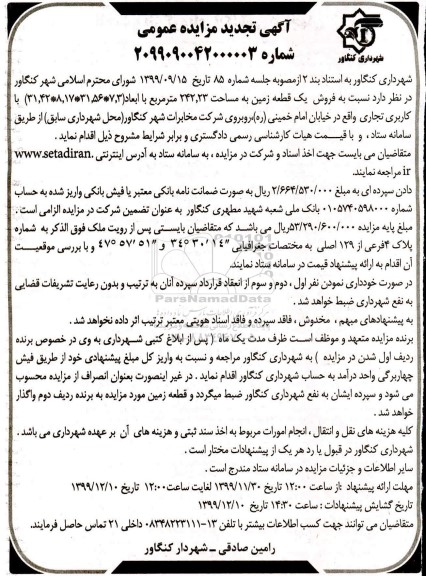 آگهی تجدید مزایده عمومی
شماره ۲۰۹۹۰۹۰۰۴۲۰۰۰۰۰۳
شهرداری کنگاور
شهرداری کنگاور به استناد بند ۲ ازمصوبه جلسه شماره ۸۵ تاریخ ۱۳۹۹/۰۹/۱۵ شورای محترم اسلامی شهر کنگاور
در نظر دارد نسبت به فروش یک قطعه زمین به مساحت ۲۴۲,۲۳ مترمربع با ابعاد(۷,۳*۳۱,۵۶*۸,۱۷*۳۱,۴۲) با
کاربری تجاری واقع در خیابان امام خمینی (ره)،روبروی شرکت مخابرات شهر کنگاور(محل شهرداری سابق) از طریق
سامانه ستاد ، و با قیـــمت هیات کارشناسی رسمی دادگستری و برابر شرایط مشروح ذیل اقدام نماید .
متقاضیان می بایست جهت اخذ اسناد و شرکت در مزایده ، به سامانه ستاد به آدرس اینترنتی www.setadiran.
ir مراجعه نمایند.
دادن سپرده ای به مبلغ ۲/۶۶۴/۵۳۰/۰۰۰ ریال به صورت ضمانت نامه بانکی معتبر یا فیش بانکی واریز شده به حساب
شماره ۰۱۰۵۷۴۰۵۹۸۰۰۰ بانک ملی شعبه شهید مطهری کنگاور به عنوان تضمین شرکت در مزایده الزامی است .
مبلغ پایه مزایده ۵۳/۲۹۰/۶۰۰/۰۰۰ریال می باشــد که متقاضیان بایستــی پس از رویت ملک فوق الذکر به شماره
پلاک ۴فرعی از ۱۲۹ اصلی به مختصات جغرافیایی "۱۴ /۳۰ ۳۴۵ و "۵۱/ ۵۷ ۴۷۵ و با بررسی موقعیـت
آن اقدام به ارائه پیشنهاد قیمت در سامانه ستاد نمایند.
در صورت خودداری نمودن نفر اول ، دوم و سوم از انعقاد قرارداد سپرده آنان به ترتیب و بدون رعایت تشریفات قضایی
به نفع شهرداری ضبط خواهد شد .
ParsNamadData
به پیشنهادهای مبهم ، مخدوش ، فاقد سپرده و فاقد اسناد هویتی معتبر ترتیب اثر داده نخواهد شد .
برنده مزایده متعهد و موظف اســت ظرف مدت یک ماه ( پس از ابلاغ کتبی شــهرداری به وی در خصوص برنده
ردیف اول شدن در مزایده ) به شهرداری کنگاور مراجعه و نسبت به واریز کل مبلغ پیشنهادی خود از طریق فیش
چهاربرگی واحد درآمد به حساب شهرداری کنگاور اقدام نماید . در غیر اینصورت بعنوان انصراف از مزایده محسوب
می شود و سپرده ایشان به نفع شهرداری کنگاور ضبط میگردد و قطعه زمین مورد مزایده به برنده ردیف دوم واگذار
خواهد شد .
کلیه هزینه های نقل و انتقال ، انجام امورات مربوط به اخذ سند ثبتی و هزینه های آن بر عهده شهرداری می باشد .
شهرداری کنگاور در قبول یا رد هر یک از پیشنهادات مختار است .
سایر اطلاعات و جزئیات مزایده در سامانه ستاد مندرج است .
مهلت ارائه پیشنهاد :از ساعت ۱۲:۰۰ تاریخ ۱۳۹۹/۱۱/۳۰ لغایت ساعت۱۲:۰۰ تاریخ ۱۳۹۹/۱۲/۱۰
تاریخ گشایش پیشنهادات : ساعت ۱۴:۳۰ تاریخ ۱۳۹۹/۱۲/۱۰
متقاضیان می توانند جهت کسب اطلاعات بیشتر با تلفن ۱۳-۰۸۳۴۸۲۲۳۱۱۱ داخلی ۲۱ تماس حاصل فرمایند.
رامین صادقی ــ شهردار کنگاور